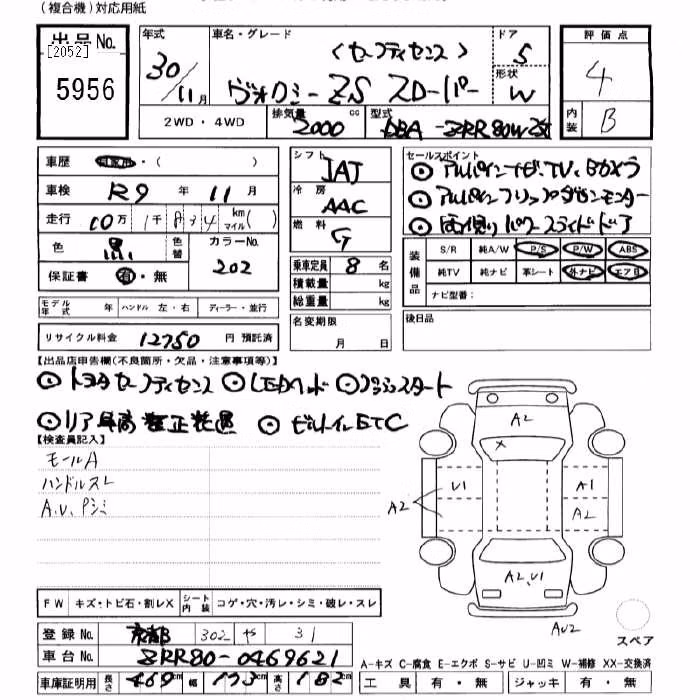 (複合機)対応用紙
出品No.
[2052]
5956
年式
30/11月
車名・グレード
(セーフティセンス)
ヴォクシー ZS
ドア
5
形状
W
評価点
4
内装
B
2WD・4WD
排気量
2000 cc
型式
DBA-ZRR80W
車歴 自家用・( )
車検 R9 年 11 月
走行 10万 1千 8 3 4 km マイル( )
色 黒 色替
カラーNo.
202
保証書 有・無
シフト
IAT
冷房
AAC
燃料
G
乗車定員 8 名
積載量 kg
総重量 kg
名変期限
月 日
セールスポイント
◎ アルパインナビ、TV、Bカメラ
◎ アルパインフリップダウンモニター
◎ 両側パワースライドドア
装備品
S/R 純A/W P/S P/W ABS
純TV 純ナビ 革シート 外ナビ エアB
ナビ型番:
後日品
モデル年式 年 ハンドル 左・右 ディーラー・並行
リサイクル料金 12750 円 預託済
【出品店申告欄(不良箇所・欠品・注意事項等)】
◎ トヨタセーフティセンス ◎ LEDヘッド ◎ プッシュスタート
◎ リア ◎ ビルトインETC
【検査員記入】
モールA
ハンドルスレ
A.U.Pシミ
A2
U1
A1
A2
A2
A2,U1
AU2
スペア
FW キズ・トビ石・割レX シート内装 コゲ・穴・汚レ・シミ・破レ・スレ
登録No. 京都 302 や 31
車台No. ZRR80-0469621
車庫証明用 長さ 469cm 幅 173cm 高さ 182cm
A-キズ C-腐食 E-エクボ S-サビ U-凹ミ W-補修 XX-交換済
工具 有・無 ジャッキ 有・無